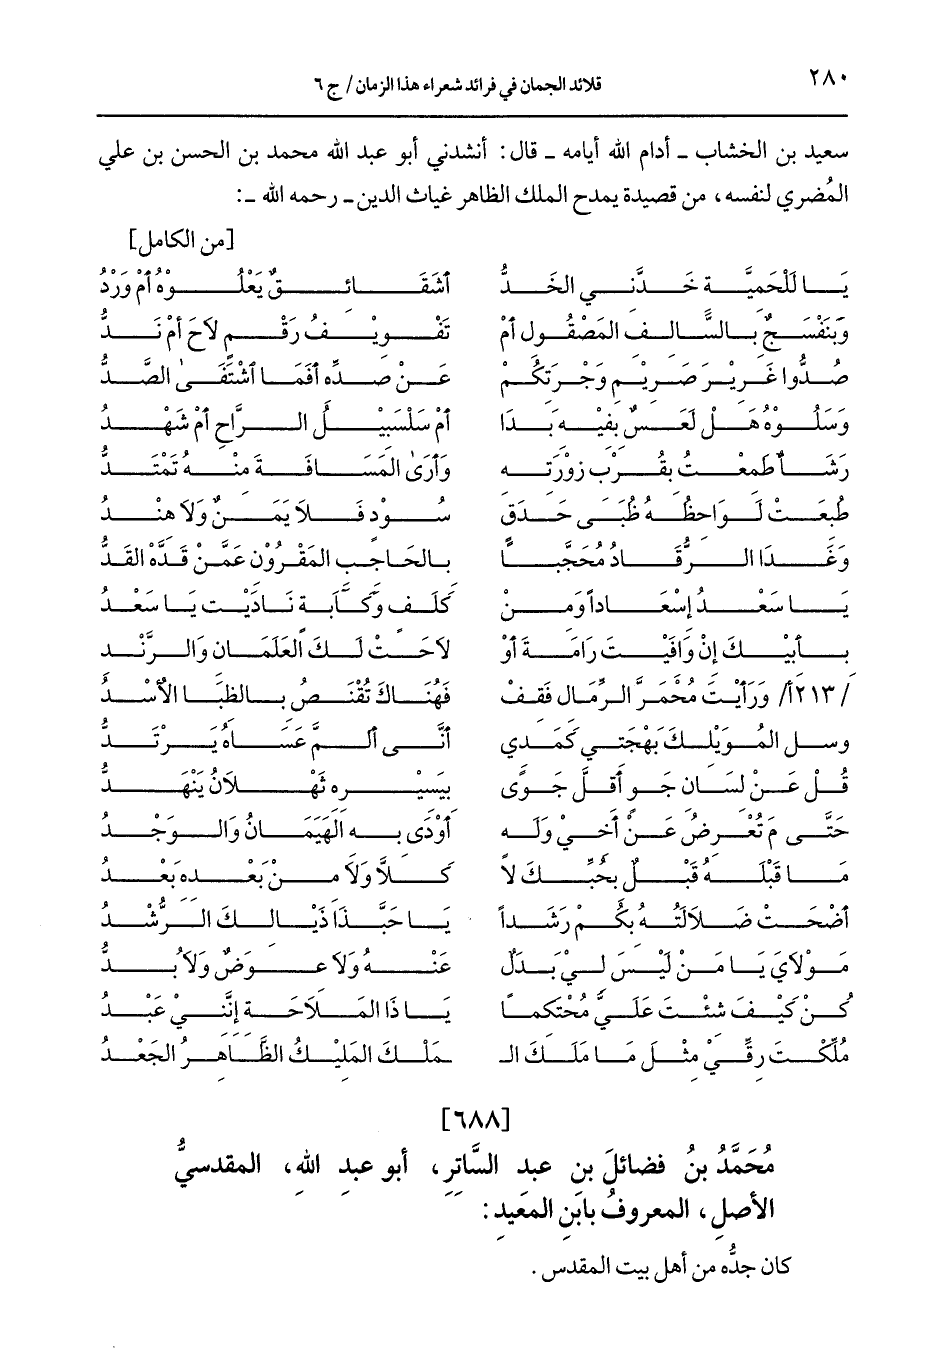 ٢٨٠ قلائد الجمان في فرائد شعراء هذا الزمان/ ج ٦
سعيد بن الخشاب ـ أدام الله أيامه ـ قال: أنشدني أبو عبد الله محمد بن الحسن بن علي
المُضري لنفسه، من قصيدة يمدح الملك الظاهر غياث الدين ـ رحمه الله ـ:
[من الكامل]
يَا لَلْحَمِيَّةِ خَدَّنِي الخَدُّ أَشَقَائِقٌ يَعْلُوهُ أَمْ وَرْدُ
وَبَنَفْسَجٌ بِالسَّالِفِ المَصْقُولِ أَمْ تَفْوِيْفُ رَقْمٍ لَاحَ أَمْ نَدُّ
صُدُّوا غَرِيْرَ صَرِيْمٍ وَجْرَتِكُمْ عَنْ صَدِّهِ أَفَمَا اشْتَفَى الصَّدُّ
وَسَلُوهُ هَلْ لَعَسٌ بِفِيْهِ بَدَا أَمْ سَلْسَبِيْلُ الرَّاحِ أَمْ شَهْدُ
رَشَأٌ طَمِعْتُ بِقُرْبِ زَوْرَتِهِ وَأَرَىٰ المَسَافَةَ مِنْهُ تَمْتَدُّ
طُبِعَتْ لَوَاحِظُهُ ظُبَى حَدَقٍ سُوْدٍ فَلَا يَمَنٌ وَلَا هِنْدُ
وَغَدَا الرُّقَادُ مُحَجَّبًا بِالحَاجِبِ المَقْرُوْنِ عَمَّنْ قَدَّهُ القَدُّ
يَا سَعْدُ إِسْعَاداً وَمِنْ كَلَفٍ وَكَآبَةٍ نَادَيْتُ يَا سَعْدُ
بِأَبِيْكَ إِنْ وَافَيْتَ رَامَةَ أَوْ لَاحَتْ لَكَ العَلَمَانِ وَالرَّنْدُ
/٢١٣أ/ وَرَأَيْتَ مُحْمَرَّ الرِّمَالِ فَقِفْ فَهُنَاكَ تُقْنَصُ بِالظِّبَا الأُسْدُ
وسلِ المُوَيْلِكَ بَهْجَتِي كَمَدِي أَنَّى أَلَمَّ عَسَاهُ يَرْتَدُّ
قُلْ عَنْ لِسَانِ جَوٍ أَقَلُّ جَوًى بِيَسِيْرِهِ ثَهْلَانُ يَنْهَدُّ
حَتَّى مَ تُعْرِضُ عَنْ أَخِيْ وَلَهٍ أَوْدَى بِهِ الهَيَمَانُ وَالوَجْدُ
مَا قَبْلَهُ قَبْلٌ بِحُبِّكَ لَا كَلَّا وَلَا مِنْ بَعْدِهِ بَعْدُ
أَضْحَتْ ضَلَالَتُهُ بِكُمْ رَشَداً يَا حَبَّذَا ذَيَّالِكَ الرُّشْدُ
مَوْلَايَ يَا مَنْ لَيْسَ لِيْ بَدَلٌ عَنْهُ وَلَا عِوَضٌ وَلَا بُدُّ
كُنْ كَيْفَ شِئْتَ عَلَيَّ مُحْتَكِمًا يَا ذَا المَلَاحَةِ إِنَّنِي عَبْدُ
مُلِّكْتَ رِقِّيْ مِثْلَ مَا مَلَكَ الـ ـمَلِكَ المَلِيْكُ الظَّاهِرُ الجَعْدُ
[٦٨٨]
مُحَمَّدُ بنُ فضائلَ بنِ عبدِ السَّاترِ، أبو عبدِ اللهِ، المقدسيُّ
الأصلِ، المعروفُ بابنِ المعيدِ:
كان جدُّه من أهل بيت المقدس.